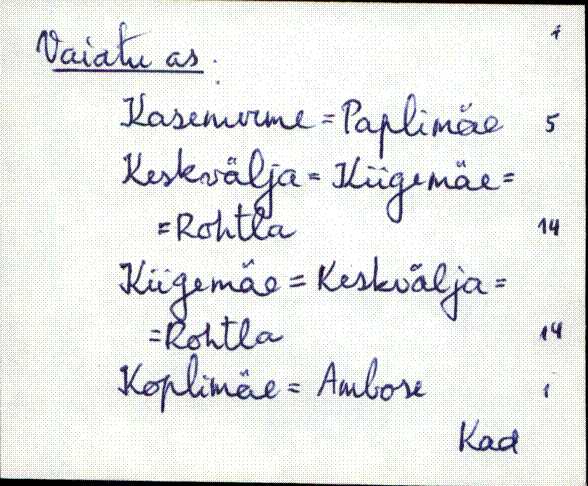 Vaiatu as.
Kasenurme = Paplimäe 5
Keskvälja = Kiigemäe =
= Rohtla 14
Kiigemäe = Keskvälja =
= Rohtla 14
Koplimäe = Ambose 1
Kad